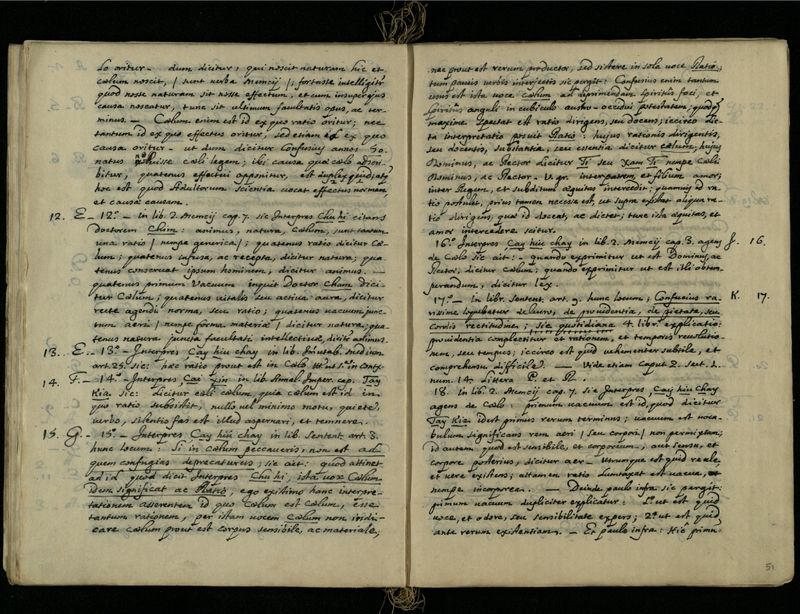 lo oritur - dum dicitur, qui noscit naturam hic et
cælum noscit, | sunt verba Memcij |, fortasse intelligitr
quod nosse naturam sit nosse effectum, et cum insuper eius
causa noscatur, tunc sit ultimum facultatis opus, ac ter-
minus - Cælum enim est id ex quo ratio oritur; nec
tantum id ex quo effectus oritur, sed etiam id ex quo
causa oritur - ut dum dicitur Confusius annos 50.
natus novisse cæli legem; ibi causa quæ cælo
bitur, quatenus effectui opponitur, est duplex quid, atq
hoc est quod Adultorum scientia vocat effectus normam,
et causæ causam.
12. E - 12.º - In lib. 2. Memcij cap. 7. sic Interpres Chu hi citans
Doctorem Chim: animus, natura, Cælum, sunt tantum
una ratio | nempe generica |; quatenus ratio dicitur Cæ-
lum; quatenus infusa, ac recepta, dicitur natura; qua-
tenus conservat ipsum hominem, dicitur animus. -
quatenus primum Vacuum inquit Doctor Cham dici-
tur Cælum; quatenus vitalis seu activa aura, dicitur
recte agendi norma, seu ratio; quatenus vacuum junc-
tum aeri | nempe forma materiæ | dicitur natura; qua-
tenus natura juncta facultati intellectivæ, dicitr animus.
13. E - 13.º - Interpres Cay hiu chay in lib. Inutab. medium
art. 25. sic: hæc ratio provt est in Cælo
14. F. - 14.º - Interpres Cai Xin in lib. Annal. Imper. cap. Tay
Kia. sic: dicitur cæli cælum, quia cælum est id in
quo ratio subsistit, nullo vel minimo motu, quiete,
verbo, silentio fas est illud aspernari, et temnere.
15. G. - 15.º - Interpres Cay hiu chay in lib. Sentent. art. 3.
hunc locum: Si in cælum peccaveris, non est ad
quem confugias deprecaturus; sic ait: quod attinet
ad id quod dicit Interpres Chu hi, ista vox Cælum
idem significat ac Ratio, ego existimo hanc interpre-
tationem asserentem id quo Cælum est cælum, esse
tantum rationem, per istam vocem Cælum non indi-
care cælum prout est corpus sensibile, ac materiale,
nec prout est rerum productor, sed sistere in sola voce Ratio;
tum paucis verbis interjectis sic pergit: Confusius enim tantum
usus est ista voce Cælum ad deprimendum spiritus foci, et
spiritus anguli in cubiculi austro-occidui potestatem; quod
maxime spectat est ratio dirigens, seu docens; iccirco dic-
ta interpretatio posuit Ratio: hujus rationis dirigentis,
seu docentis, substantia, seu essentia dicitur cælum; hujus
Dominus, ac Rector dicitur Ti seu Xam Ti nempe Cæli
Dominus, ac Rector. V. gr. inter patrem, et filium amor;
inter Regem, et subditum æquitas intercedit: quamvis id ra-
tio postulet, prius tamen necesse est, ut supra existat aliqua ra-
tio dirigens, quæ id doceat, ac dictet; tunc ista æquitas, et
amor intercedere scitur.
16.º Interpres Cay hiu chay in lib. 2. Memcij cap. 3. agens J. 16.
de Cælo sic ait: - quando exprimitur ut est Dominus, ac
Rector, dicitur Cælum; quando exprimitur ut est illi obtem-
perandum, dicitur lex
17.º - In libr. Sentent. art. 9. hunc locum, Confusius ra- K. 17.
rissime loquebatur de lucro, de providentia, de pietate, seu
cordis rectitudine; sic quotidiana 4. libr. explicatio:
providentia complectitur et rationem, et temporis revolutio-
nem, seu tempus; iccirco est quid vehementer subtile, et
comprehensu difficile. - Vide etiam Caput 2. sect. 1.
num. 14. Littera P. et Pl.
18. In lib. 2. Memcij cap. 7. sic Interpres, Cay hiu chay
agens de Cælo - primum vacuum est id, quod dicitur
Tay Kie, idest primus rerum terminus; vacuum est voca-
bulum significans rem aeri | seu corpori | non permixtam;
id autem quod est sensibile, et corporeum, aut sensu, et
corpore posterius, dicitur aer - utrumque est quid reale,
et vere existens; attamen ratio dumtaxat est vacua,
nempe incorporea. - Deinde paulo infra sic pergit:
primum vacuum dupliciter explicatur: 1.º ut est quid
voce, et odore, seu sensibilitate expers; 2.º ut est quid
ante rerum existentiam. - Et paulo infra: Hic primu
51